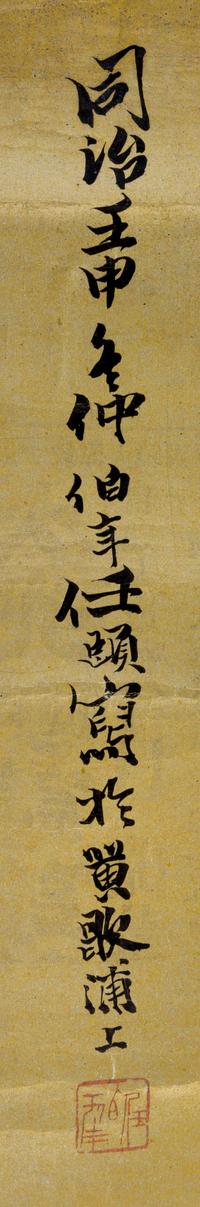 同治壬申冬仲伯年任頤寫於黄歇浦上